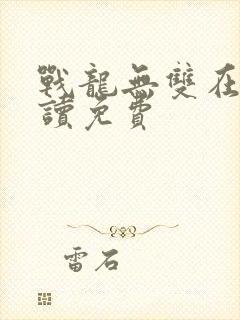 戰龍無雙在
讀免費
雷石